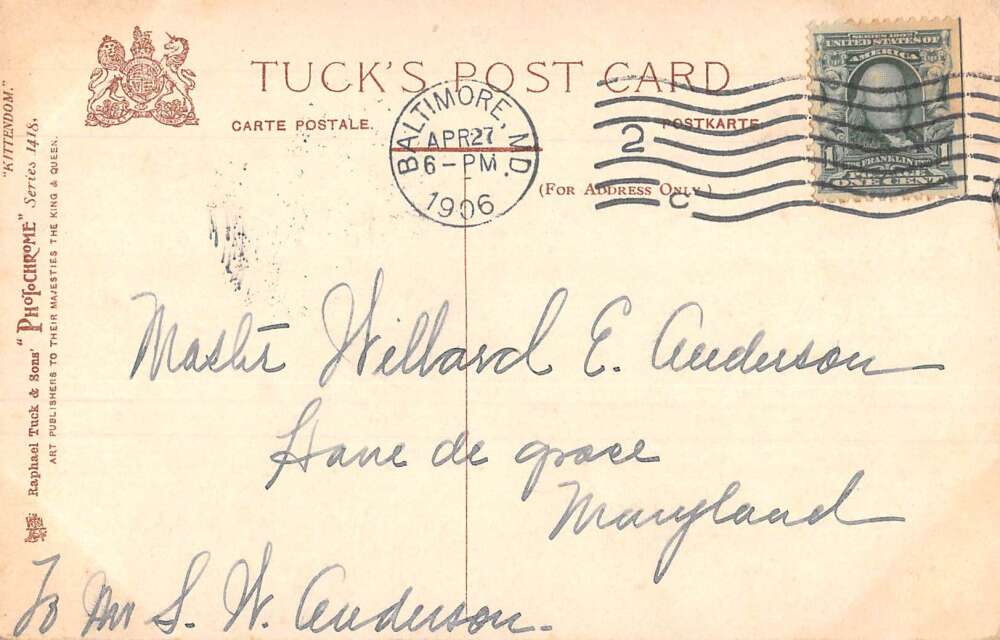 TUCK'S POST CARD
CARTE POSTALE.
POSTKARTE
(FOR ADDRESS ONLY)
BALTIMORE, MD.
APR 27
6-PM
1906
2
C
SERIES 1902
UNITED STATES OF
AMERICA
1
FRANKLIN
ONE CENT
Master Willard E. Anderson
Havre de grace
Maryland
To Mr S. W. Anderson.
"KITTENDOM."
Raphael Tuck & Sons' "PHOTOCHROME" Series 1418.
ART PUBLISHERS TO THEIR MAJESTIES THE KING & QUEEN.